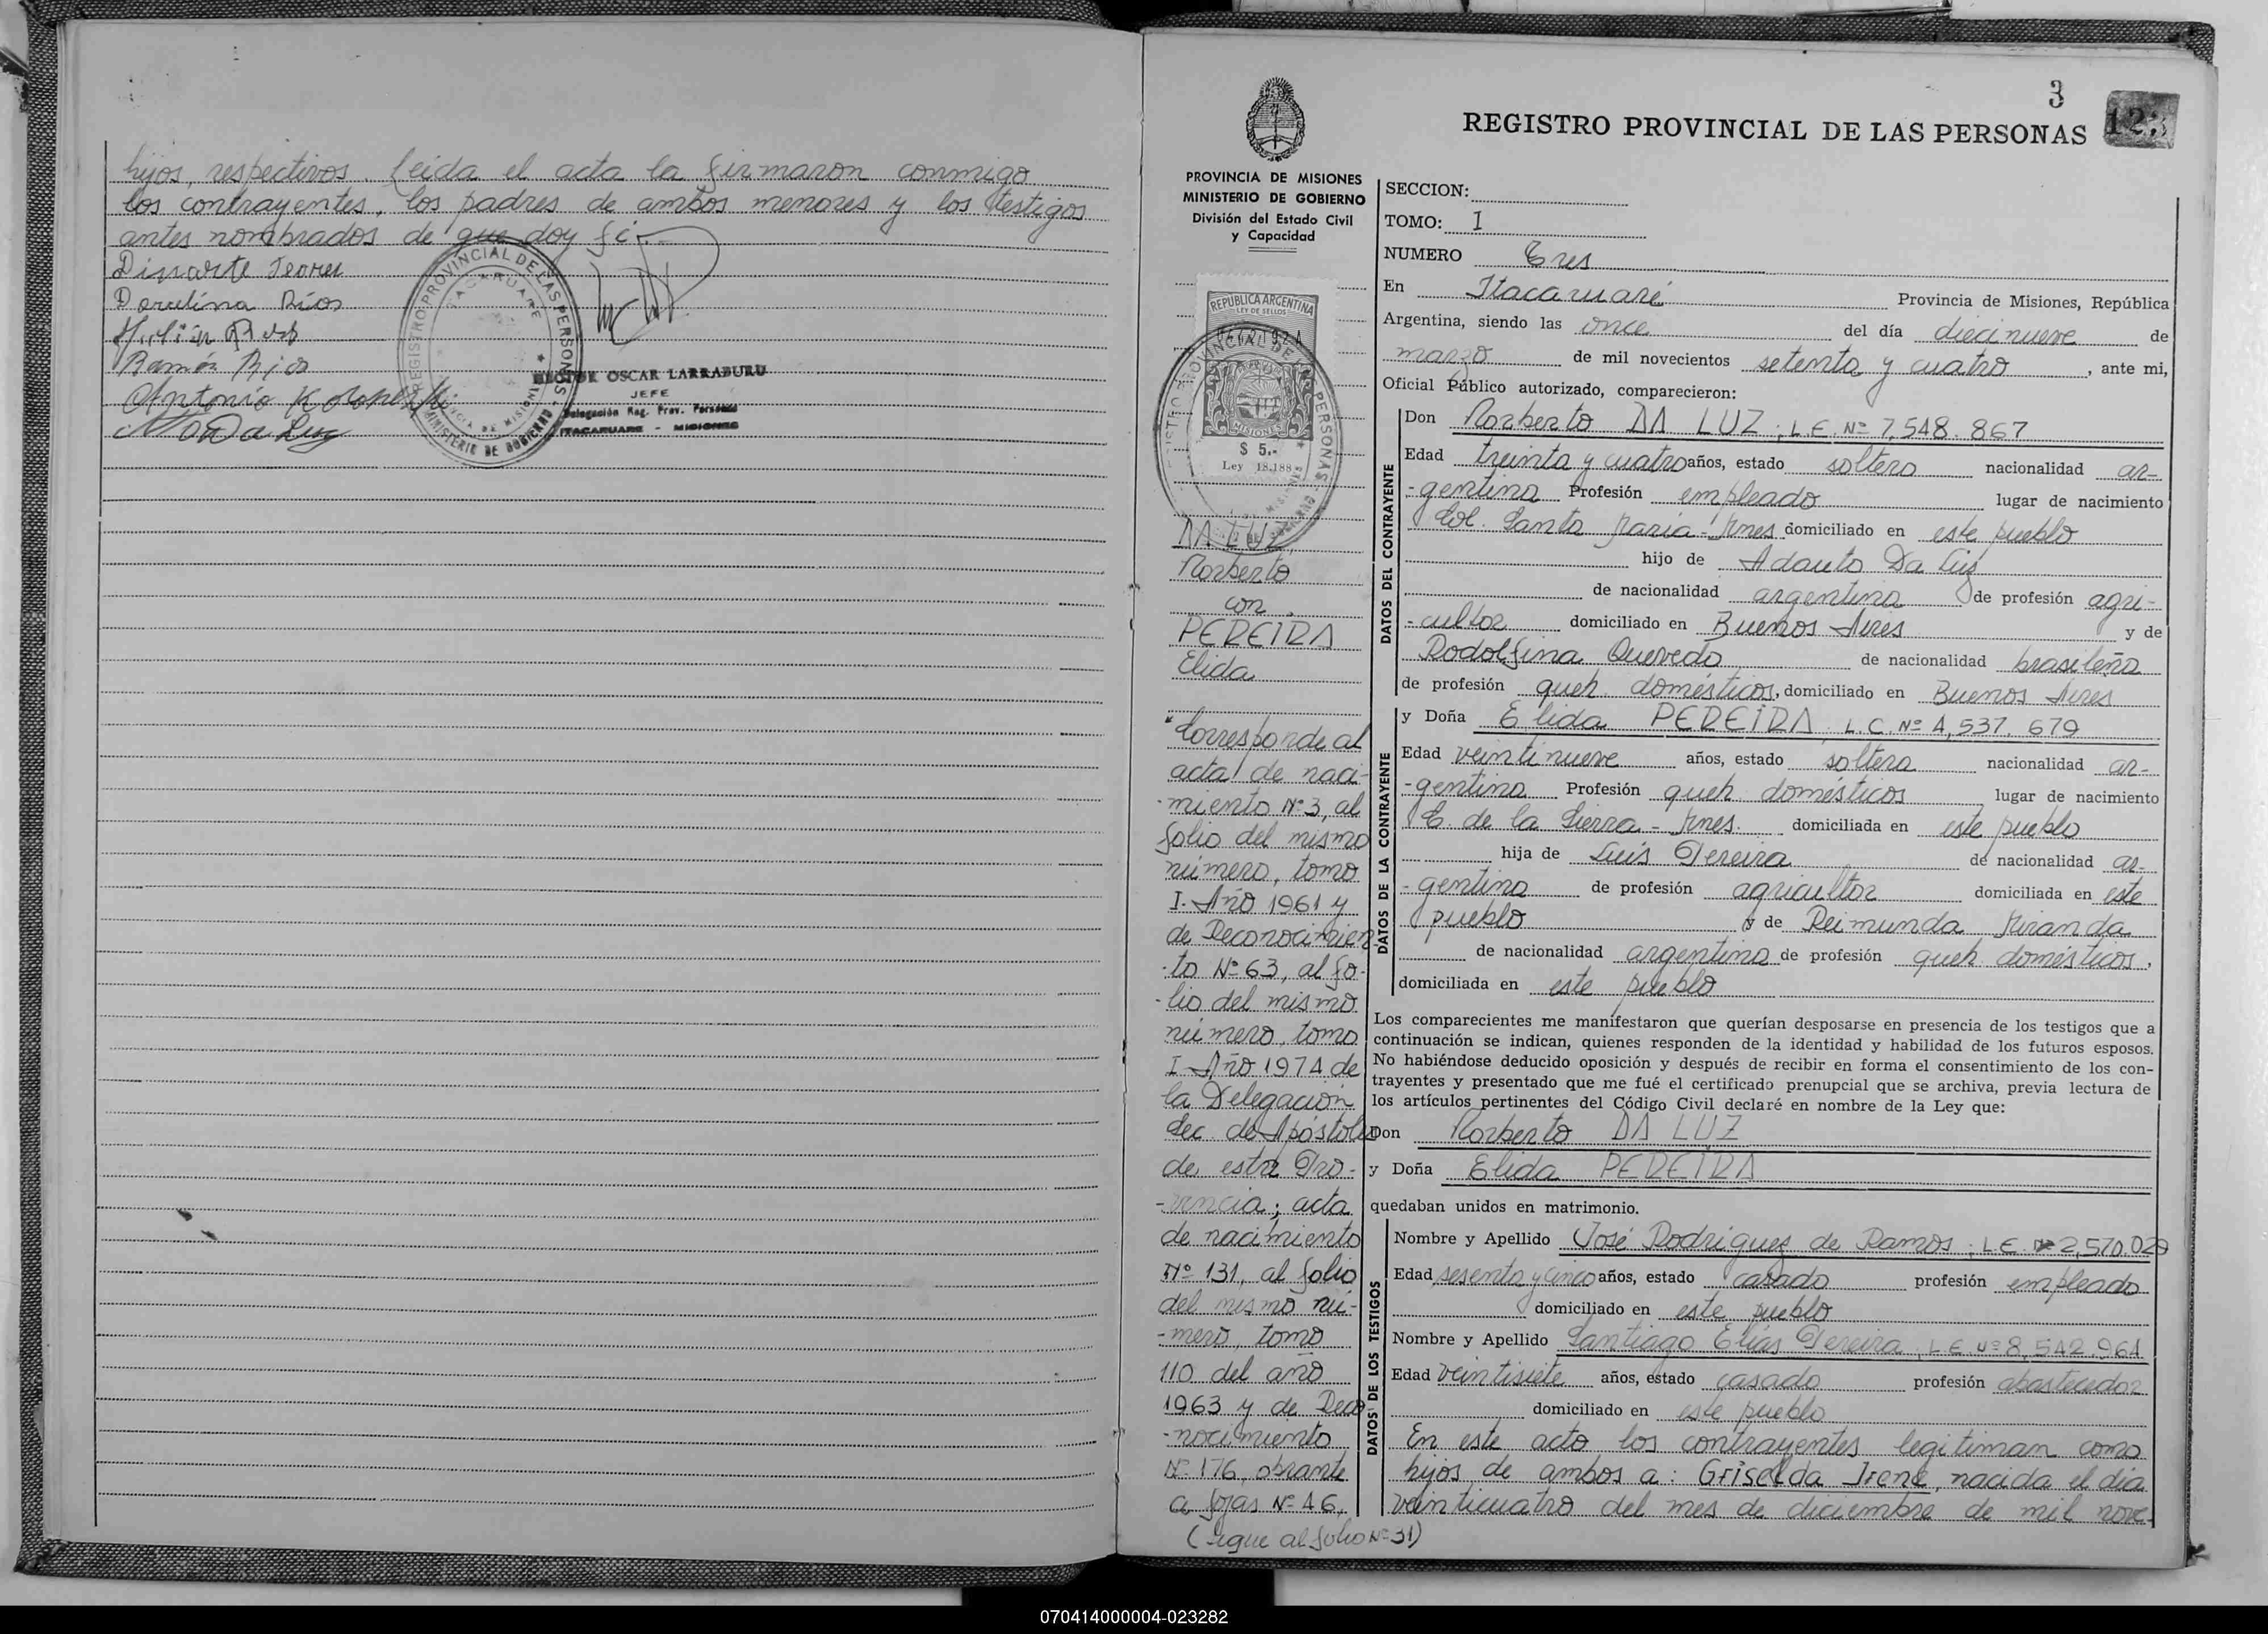 hijos, respectivos. Leída el acta la firmaron conmigo
los contrayentes, los padres de ambos menores y los testigos
antes nombrados de que doy fe.
Dorcelina Ríos
Ramón Ríos
Antonio
REGISTRO PROVINCIAL DE LAS PERSONAS
ITACARUARE
MINISTERIO DE GOBIERNO
PROVINCIA DE MISIONES
HECTOR OSCAR LARRABURU
JEFE
Delegación Reg. Prov. Personas
ITACARUARE - MISIONES
3
123
REGISTRO PROVINCIAL DE LAS PERSONAS
PROVINCIA DE MISIONES
MINISTERIO DE GOBIERNO
División del Estado Civil
y Capacidad
REPUBLICA ARGENTINA
LEY DE SELLOS
MISIONES
$ 5.-
Ley 18.188
DA LUZ
Norberto
con
PEREIRA
Elida
"Corresponde al
acta de naci-
-miento Nº 3, al
folio del mismo
número, tomo
I. Año 1961 y
de Reconocimien-
-to Nº 63, al fo-
-lio del mismo
número, tomo
I Año 1974 de
la Delegación
Sec. de Apóstoles
de esta Pro-
-vincia; acta
de nacimiento
Nº 131, al folio
del mismo nú-
-mero, tomo
110 del año
1963 y de Reco-
-nocimiento
Nº 176, obrante
a fojas Nº 46,
(Sigue al folio Nº 31)
SECCION:
TOMO: I
NUMERO Tres
En Itacaruaré Provincia de Misiones, República
Argentina, siendo las once del día diecinueve de
marzo de mil novecientos setenta y cuatro, ante mi,
Oficial Público autorizado, comparecieron:
DATOS DEL CONTRAYENTE
Don Norberto DA LUZ; L.E. Nº 7,548.867
Edad treinta y cuatro años, estado soltero nacionalidad ar-
-gentina Profesión empleado lugar de nacimiento
Col. Santa María - Mnes domiciliado en este pueblo
hijo de Adauto Da Luz
de nacionalidad argentina de profesión agri-
-cultor domiciliado en Buenos Aires y de
Rodolfina Quevedo de nacionalidad brasileña
de profesión queh. domésticos, domiciliado en Buenos Aires
DATOS DE LA CONTRAYENTE
y Doña Elida PEREIRA L.C. Nº 4,537.679
Edad veintinueve años, estado soltera nacionalidad ar-
-gentina Profesión queh domésticos lugar de nacimiento
C. de la Sierra - Mnes. domiciliada en este pueblo
hija de Luis Pereira de nacionalidad ar-
-gentina de profesión agricultor domiciliada en este
pueblo y de Reimunda Miranda
de nacionalidad argentina de profesión queh domésticos,
domiciliada en este pueblo
Los comparecientes me manifestaron que querían desposarse en presencia de los testigos que a
continuación se indican, quienes responden de la identidad y habilidad de los futuros esposos.
No habiéndose deducido oposición y después de recibir en forma el consentimiento de los con-
trayentes y presentado que me fué el certificado prenupcial que se archiva, previa lectura de
los artículos pertinentes del Código Civil declaré en nombre de la Ley que:
Don Norberto DA LUZ
y Doña Elida PEREIRA
quedaban unidos en matrimonio.
DATOS DE LOS TESTIGOS
Nombre y Apellido José Rodríguez de Ramos; L.E. Nº 2,570.029
Edad sesenta y cinco años, estado casado profesión empleado
domiciliado en este pueblo
Nombre y Apellido Santiago Elías Pereira, L.E. Nº 8,542.964
Edad veintisiete años, estado casado profesión abastecedor
domiciliado en este pueblo
En este acto los contrayentes legitiman como
hijos de ambos a: Griselda Irene, nacida el día
veinticuatro del mes de diciembre de mil nove-
070414000004-023282